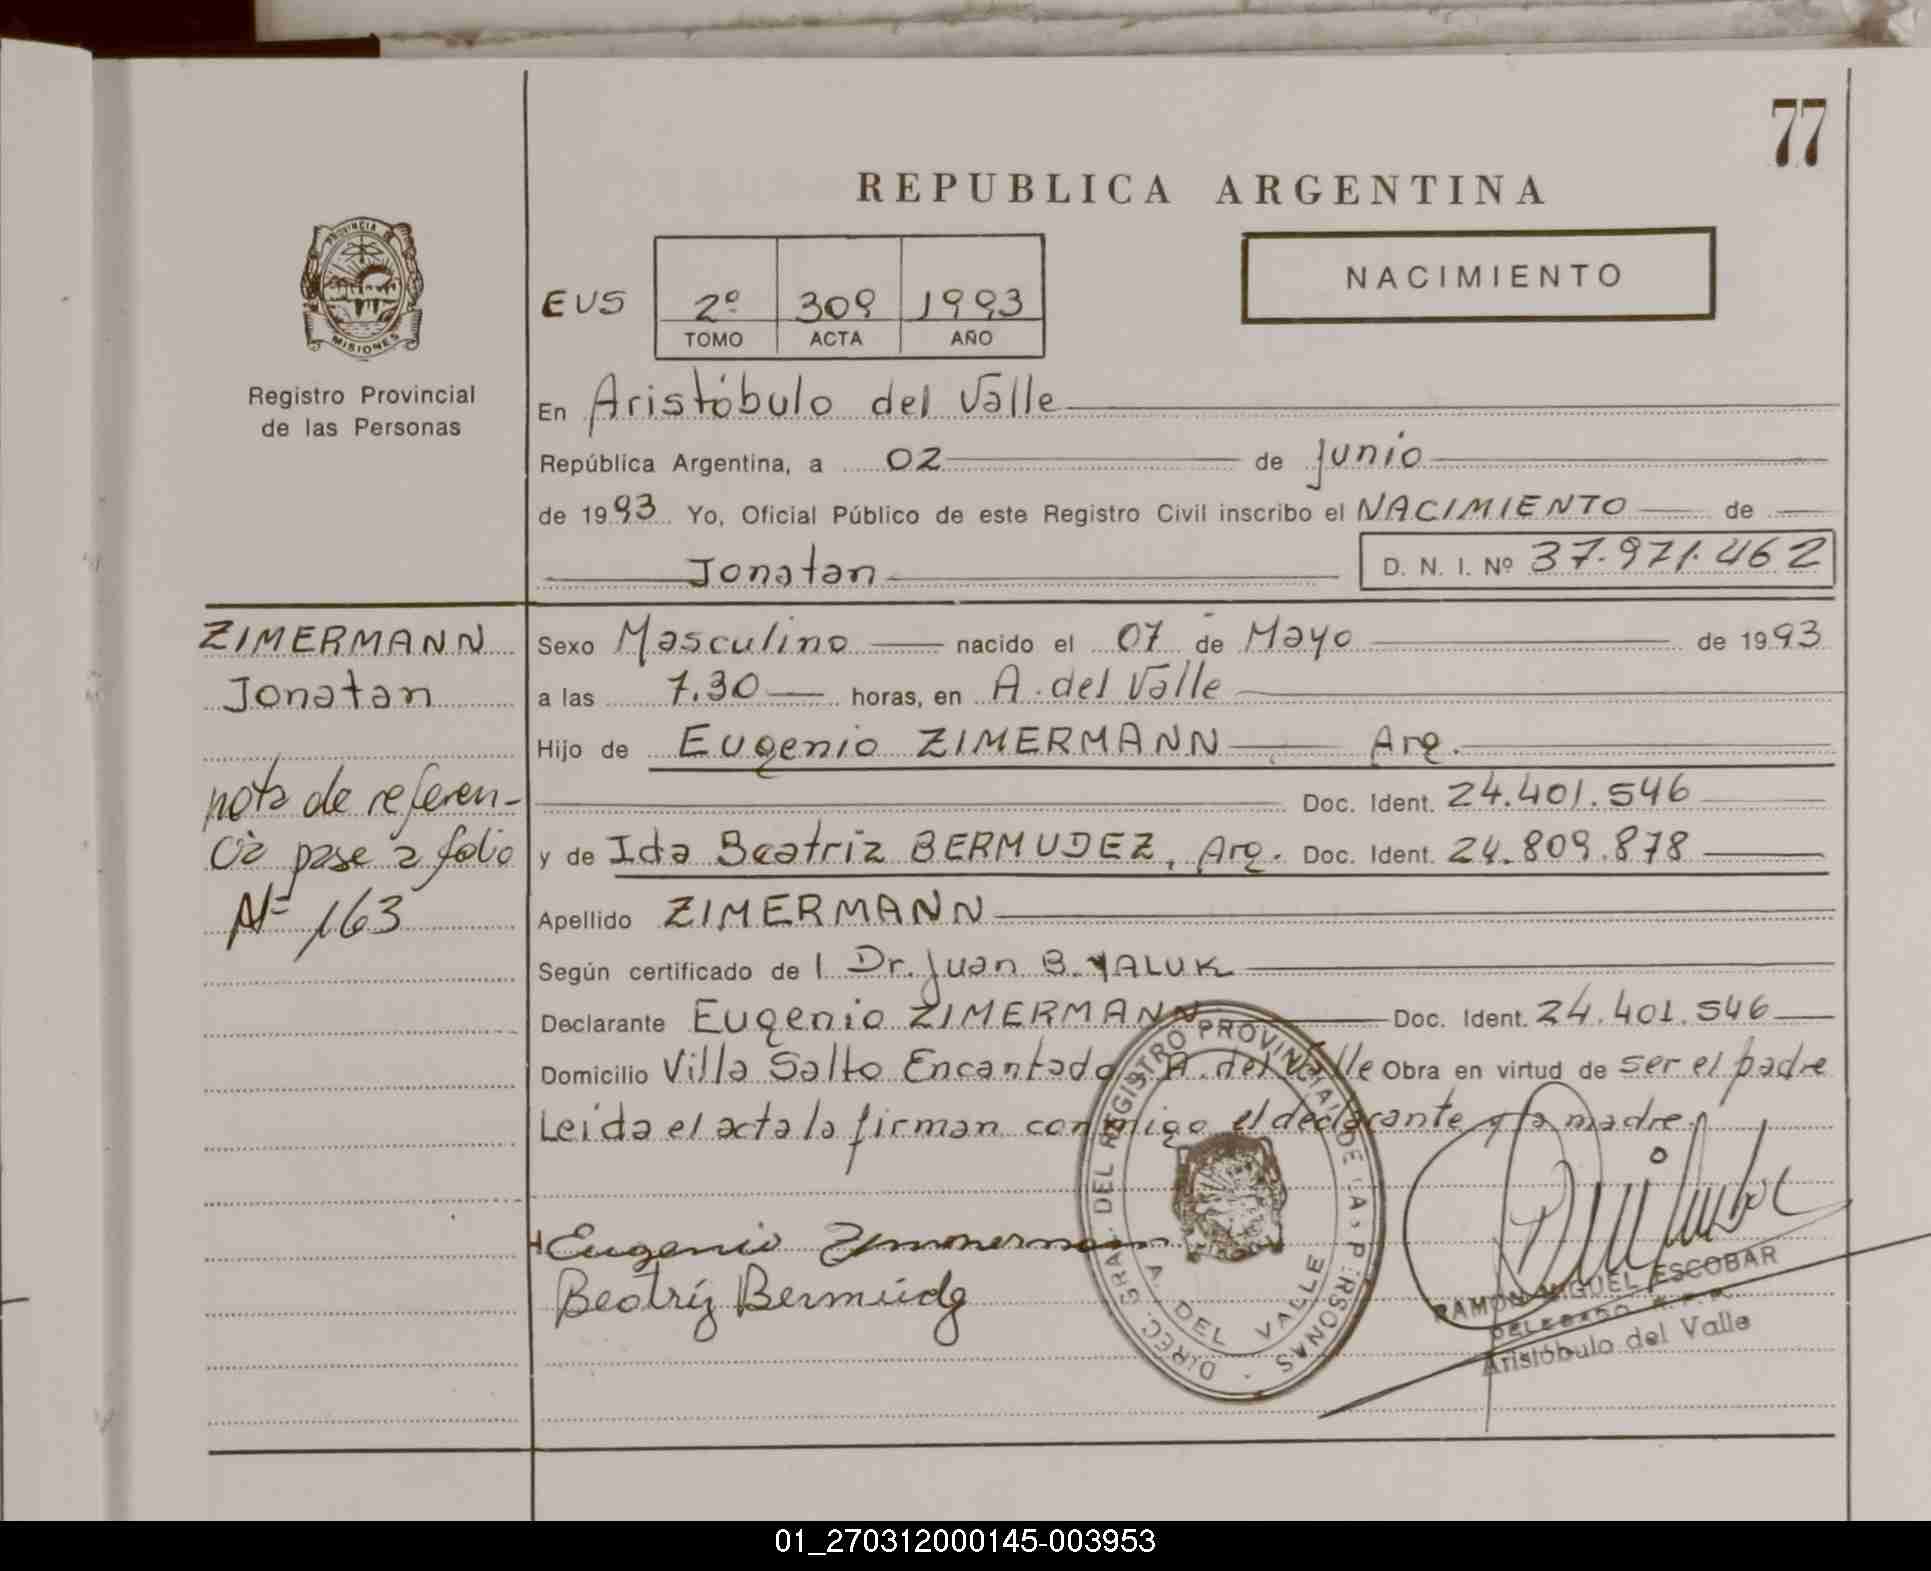 77
REPUBLICA ARGENTINA
PROVINCIA DE
MISIONES
Registro Provincial
de las Personas
NACIMIENTO
EUS 2º 309 1993
TOMO ACTA AÑO
En Aristóbulo del Valle
República Argentina, a 02 de junio
de 1993 Yo, Oficial Público de este Registro Civil inscribo el NACIMIENTO de
Jonatan D. N. I. Nº 37.971.462
ZIMERMANN
Jonatan
nota de referen-
cia pase a folio
Nº 163
Sexo Masculino nacido el 07 de Mayo de 1993
a las 7.30 horas, en A. del Valle
Hijo de Eugenio ZIMERMANN Arg.
Doc. Ident. 24.401.546
y de Ida Beatriz BERMUDEZ, Arg. Doc. Ident. 24.809.878
Apellido ZIMERMANN
Según certificado de l Dr. Juan B. YALUK
Declarante Eugenio ZIMERMANN Doc. Ident. 24.401.546
Domicilio Villa Salto Encantado A. del Valle Obra en virtud de ser el padre
Leída el acta la firman conmigo el declarante y la madre.
Eugenio Zimmermann
Beatriz Bermúdez
DIREC. GRAL. DEL REGISTRO PROVINCIAL DE LAS PERSONAS
A. DEL VALLE
RAMON MIGUEL ESCOBAR
DELEGADO R.P.P.
Aristóbulo del Valle
01_270312000145-003953